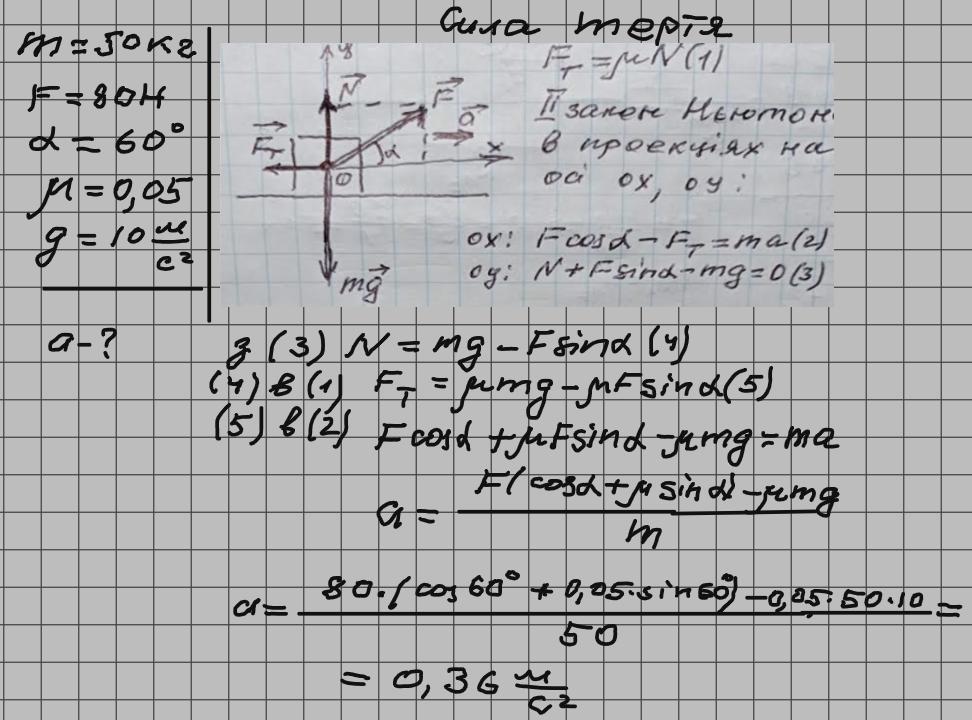 Сила тертя
m = 50 кг
F = 80 Н
α = 60°
μ = 0,05
g = 10 м/с²
a - ?
y
N
F
a
Fт
α
x
O
mg
Fт = μN (1)
II закон Ньютон
в проекціях на
осі ox, oy:
ox: Fcosα - Fт = ma (2)
oy: N + Fsinα - mg = 0 (3)
з (3) N = mg - Fsinα (4)
(4) в (1) Fт = μmg - μFsinα (5)
(5) в (2) Fcosα + μFsinα - μmg = ma
a = F(cosα + μsinα) - μmg / m
a = 80·(cos60° + 0,05·sin60°) - 0,05·50·10 / 50 =
= 0,36 м/с²